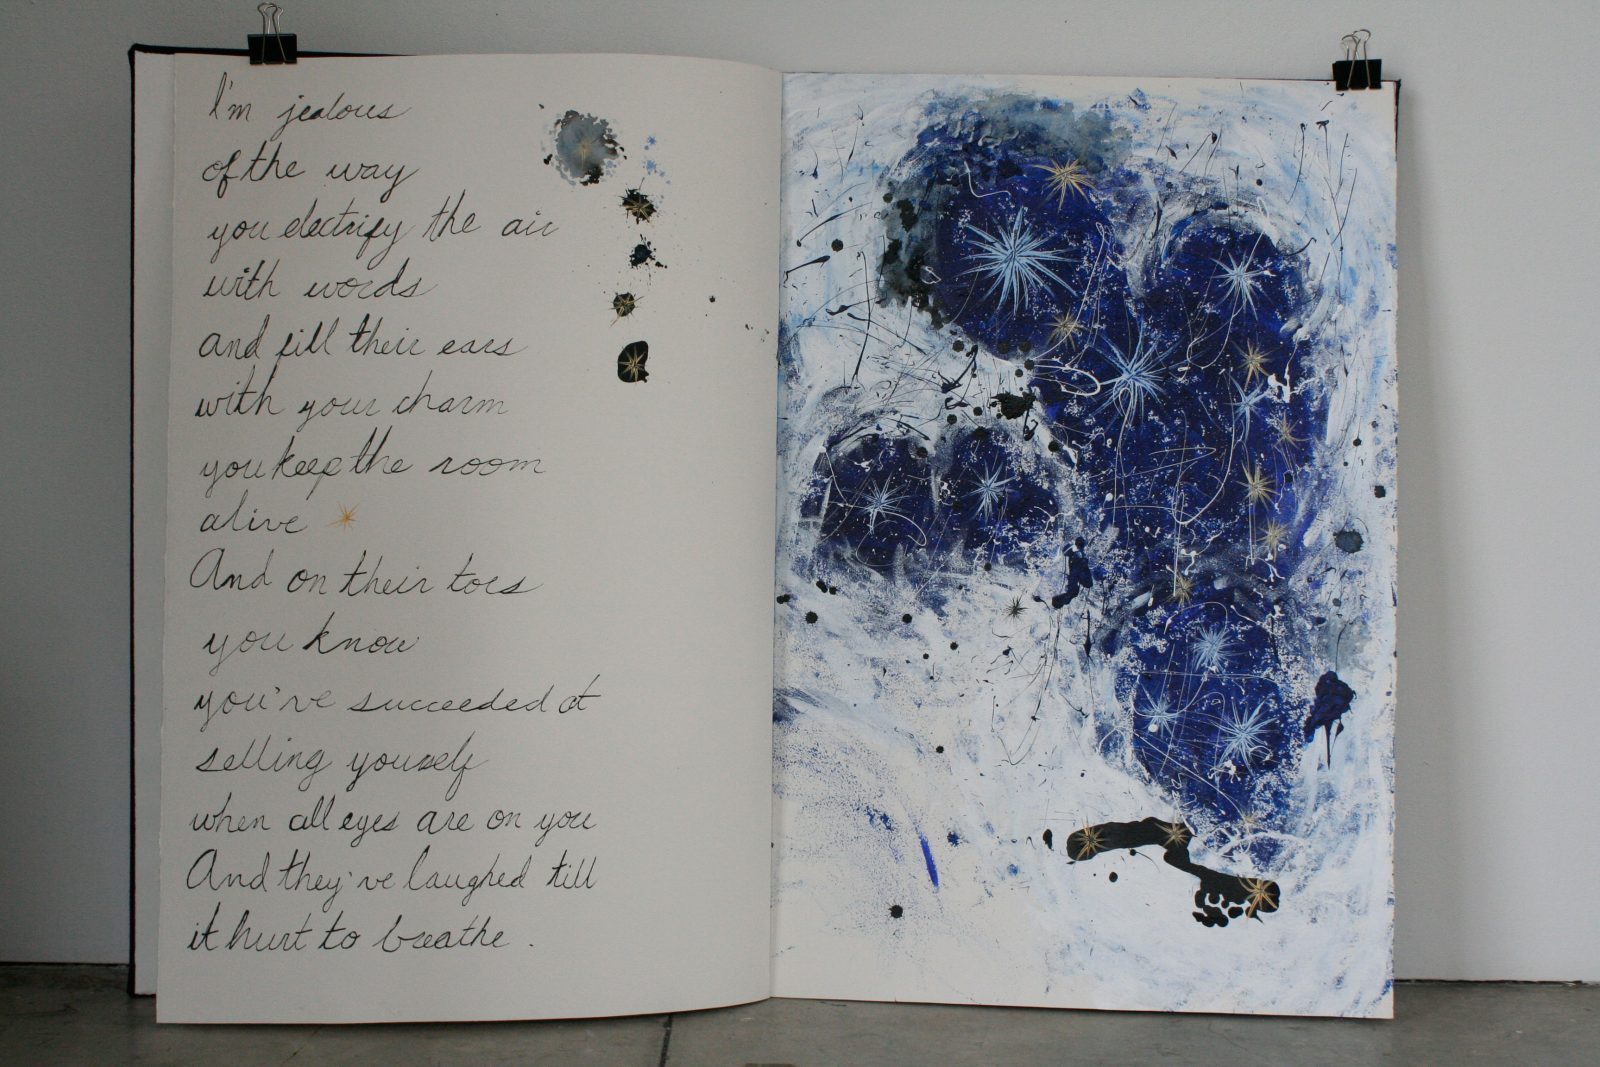 I'm jealous
of the way
you electrify the air
with words
and fill their ears
with your charm
you keep the room
alive
And on their toes
you know
you've succeeded at
selling yourself
when all eyes are on you
And they've laughed till
it hurt to breathe.